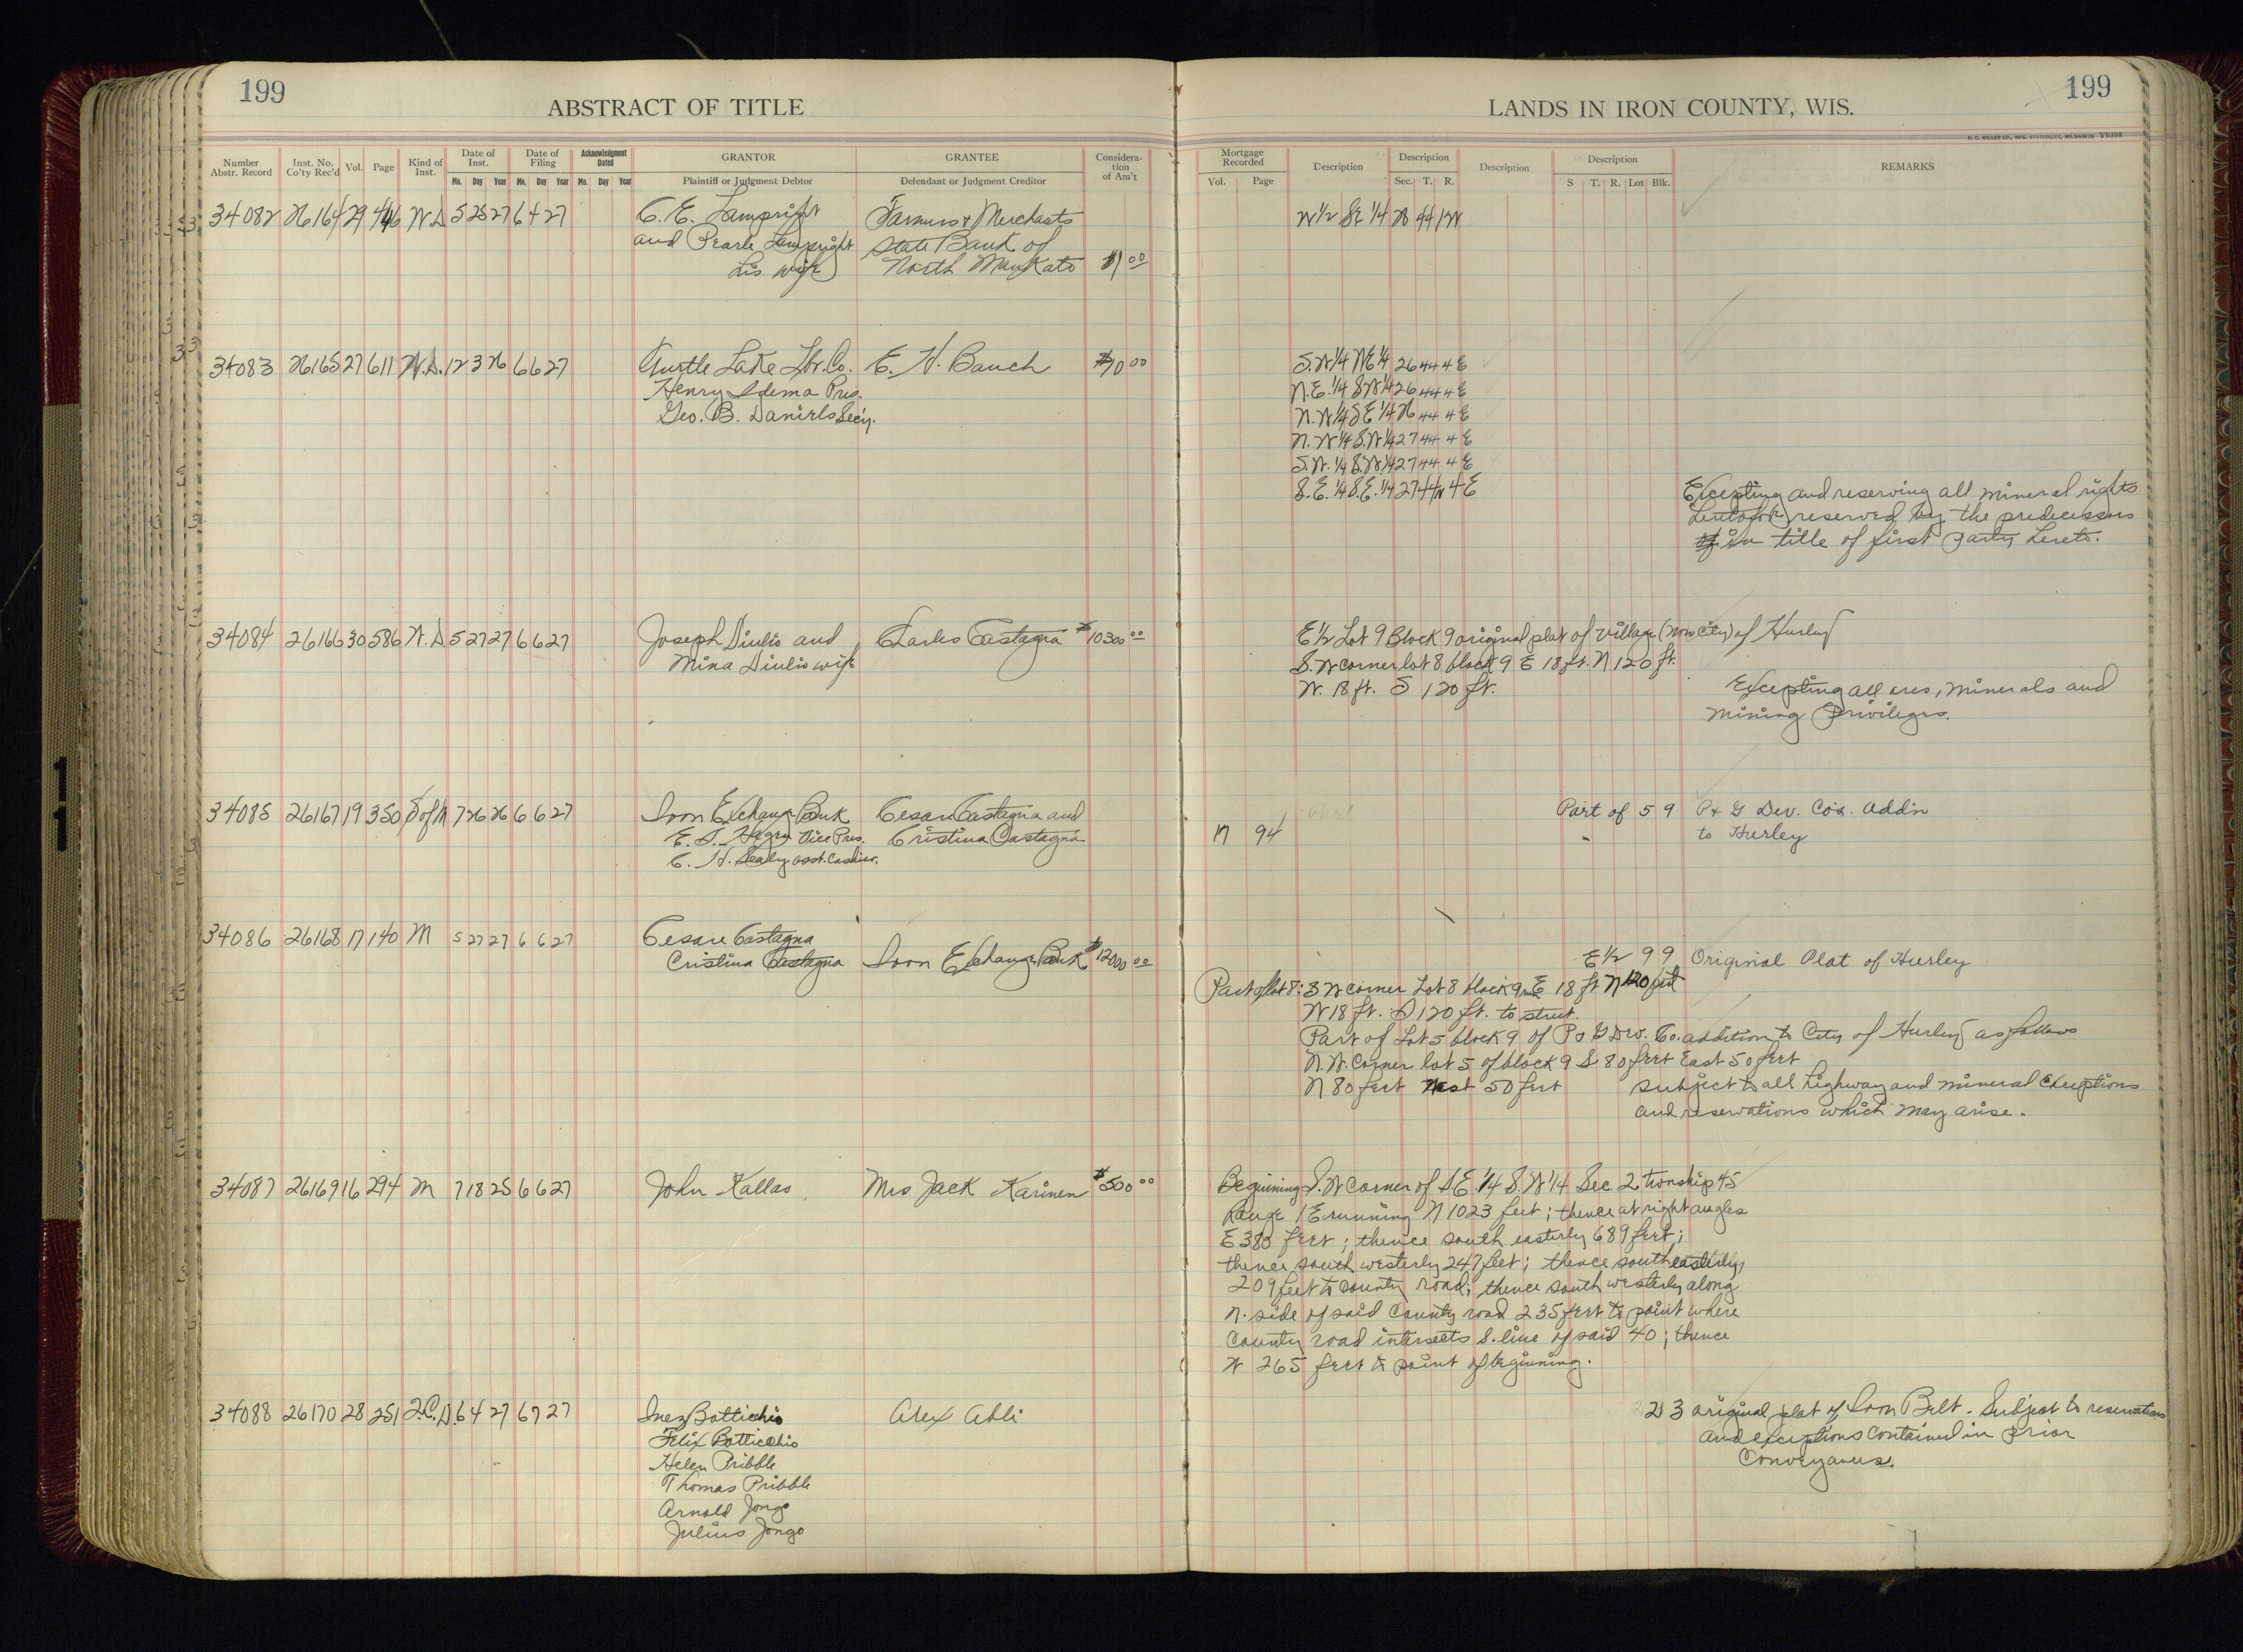 199
ABSTRACT OF TITLE
LANDS IN IRON COUNTY, WIS.
199
H. C. MILLER CO., MFG. STATIONERS, MILWAUKEE V9398
Number Abstr. Record
Inst. No. Co'ty Rec'd
Vol.
Page
Kind of Inst.
Date of Inst.
Mo. Day Year
Date of Filing
Mo. Day Year
Acknowledgment Dated
Mo. Day Year
GRANTOR
Plaintiff or Judgment Debtor
GRANTEE
Defendant or Judgment Creditor
Considera-tion of Am't
Mortgage Recorded
Vol. Page
Description
Description
Sec. T. R.
Description
Description
S T. R. Lot Blk.
REMARKS
34082 26164 29 446 W.D. 5 25 27 6 4 27 C. E. Lampright Farmers & Merchants W 1/2 SE 1/4 28 44 1W
and Pearle Lampright State Bank of
his wife North Mankato $1 00
34083 26165 27 611 W.D. 12 3 26 6 6 27 Turtle Lake Lbr. Co. E. H. Bauch $10 00 S.W 1/4 NE 1/4 26 44 4 E
Henry Idema Pres. N.E. 1/4 SW 1/4 26 44 4 E
Geo. B. Daniels Sec'y. N.W 1/4 SE 1/4 26 44 4 E
N.W 1/4 S.W 1/4 27 44 4 E
S.W. 1/4 S.W. 1/4 27 44 4 E
S.E. 1/4 S.E. 1/4 27 44N 4 E
Excepting and reserving all mineral rights
heretofore reserved by the predecessors
of in title of first party hereto.
34084 26166 30 586 W.D. 5 27 27 6 6 27 Joseph Diulio and Charles Castagna $10300 00 E 1/2 Lot 9 Block 9 original plat of village (now City) of Hurley
Mina Diulio wife S.W corner lot 8 block 9 E 18 ft. N 120 ft.
W. 18 ft. S 120 ft.
Excepting all ores, minerals and
mining privileges.
34085 26167 19 350 S of M 7 26 26 6 6 27 Iron Exchange Bank Cesare Castagna and Part of 5 9 P & G Dev. Co's. Add'n
E. J. Hagen Vice Pres. Cristina Castagna 17 94 to Hurley
C. H. Sealy asst. Cashier.
34086 26168 17 140 M 5 27 27 6 6 27 Cesare Castagna
Cristina Castagna Iron Exchange Bank $12000 00 E 1/2 9 9 Original Plat of Hurley
Part of lot 8: S W corner Lot 8 block 9 run E 18 ft N 120 feet
W 18 ft. S 120 ft. to street.
Part of Lot 5 block 9 of P & G Dev. Co. addition to City of Hurley as follows
N.W. corner lot 5 of block 9 S 80 feet East 50 feet
N 80 feet West 50 feet subject to all highway and mineral exceptions
and reservations which may arise.
34087 26169 16 294 M 7 18 25 6 6 27 John Kallas Mrs Jack Karinen $500 00 Beginning S.W corner of S.E. 1/4 S.W 1/4 Sec. 2 twonship 45
Range 1 E running N 1023 feet; thence at right angles
E 380 feet; thence south easterly 689 feet;
thence south westerly 247 feet; thence southeasterly
209 feet to county road; thence south westerly along
N. side of said County road 235 feet to point where
County road intersects S. line of said 40; thence
W 265 feet to point of beginning.
34088 26170 28 251 Q.C.D. 6 4 27 6 7 27 Inez Botticchio Alex Abli 2 3 original plat of Iron Belt. Subject to reservations
Felix Botticchio and exceptions contained in prior
Helen Pribble Conveyances.
Thomas Pribble
Arnold Jongo
Julius Jongo